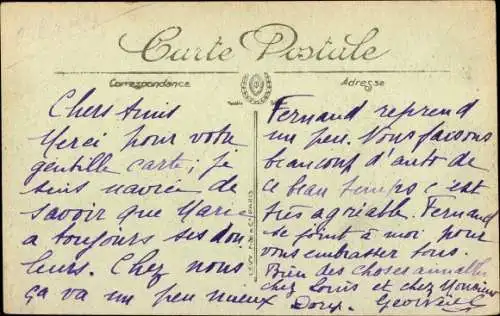 Carte Postale
Correspondance
Adresse
Chers Amis
Merci pour votre
gentille carte; je
suis navrée de
savoir que Marie
a toujours ses dou
leurs. Chez nous
ça va un peu mieux
Fernand reprend
un peu. Nous faisons
beaucoup d'auto de
ce beau temps c'est
très agréable. Fernand
se joint à moi pour
vous embrasser tous.
Bien des choses
chez Louis et chez Monsieur
Doux.